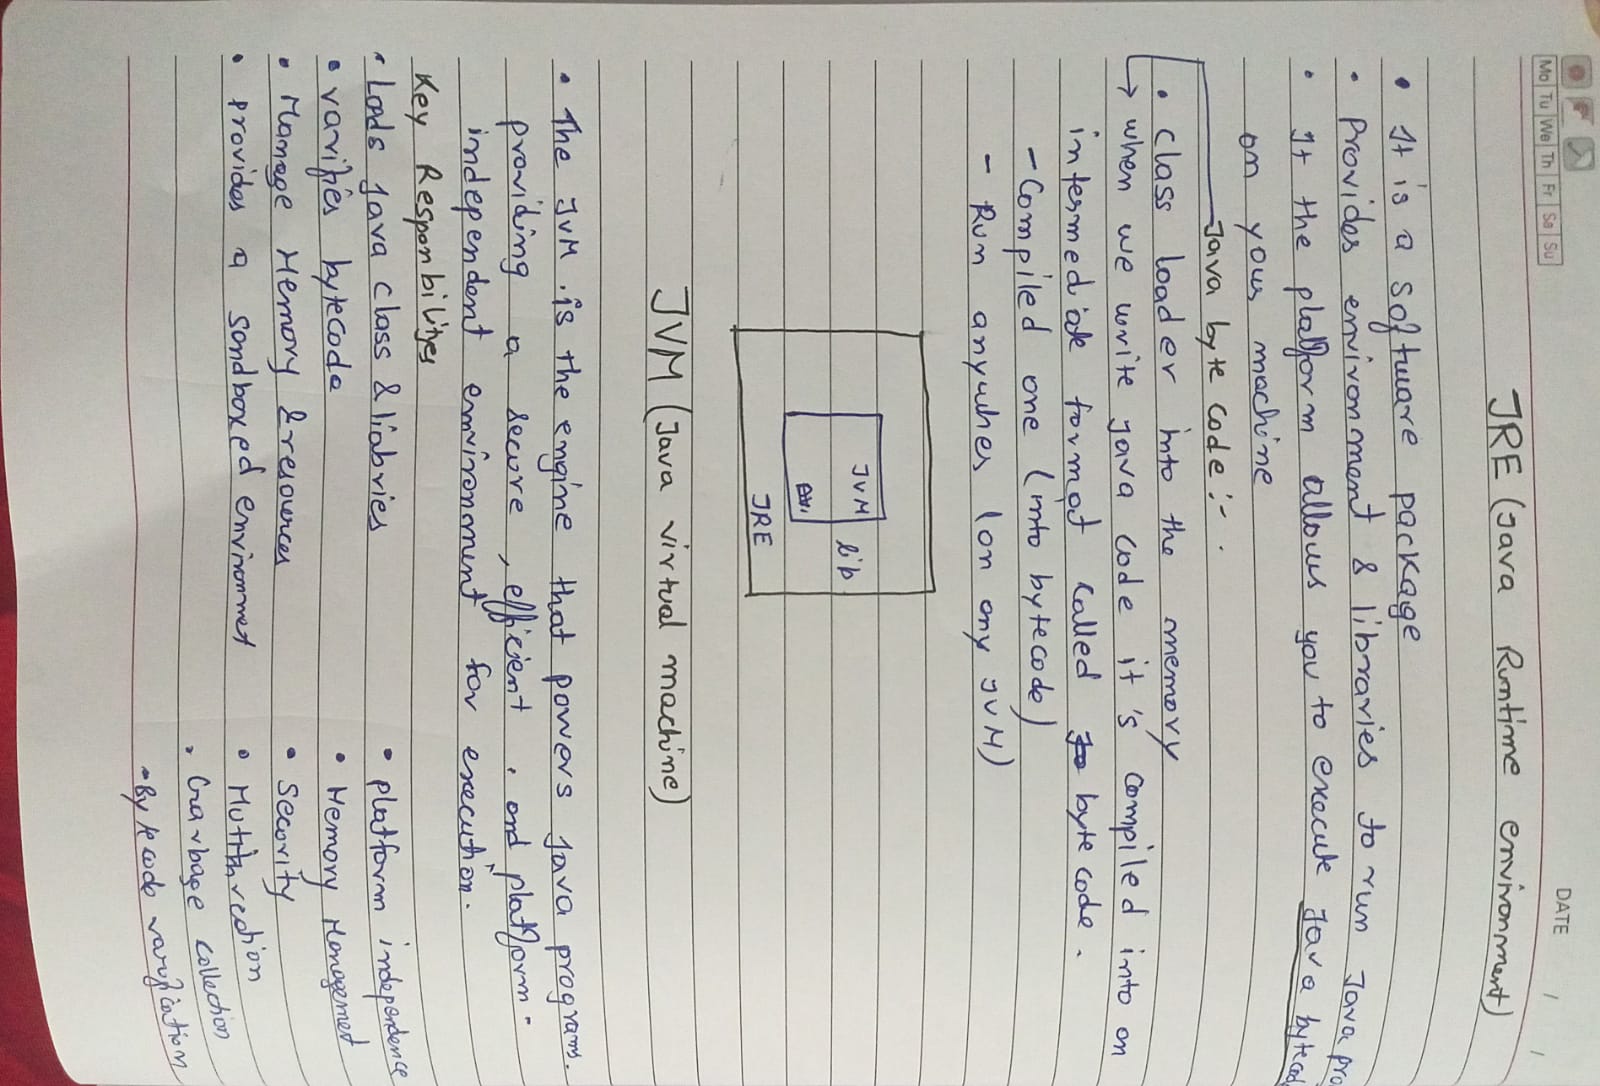 Mo Tu We Th Fr Sa Su
DATE / /
JRE (Java Runtime environment)
• It is a software package
• Provides environment & libraries to run Java pro
• It the platform allows you to execute Java bytecod
on your machine
Java byte code:-
• class loader into the memory
→ when we write Java code it's compiled into on
intermediate format called byte code.
- Compiled one (into bytecode)
- Run anywhes (on any JVM)
JVM
lib
JRE
JVM (Java virtual machine)
• The JVM is the engine that powers Java programs.
providing a secure, efficient, and platform-
independent environment for execution.
Key Responbilityes
• Loads Java class & liabries
• varifies bytecode
• Manage Memory & resources
• provides a sandboxed environmet
• platform independence
• Memory Management
• Secority
• Mutithreadion
• Gaurbage collection
• Bytecode varification